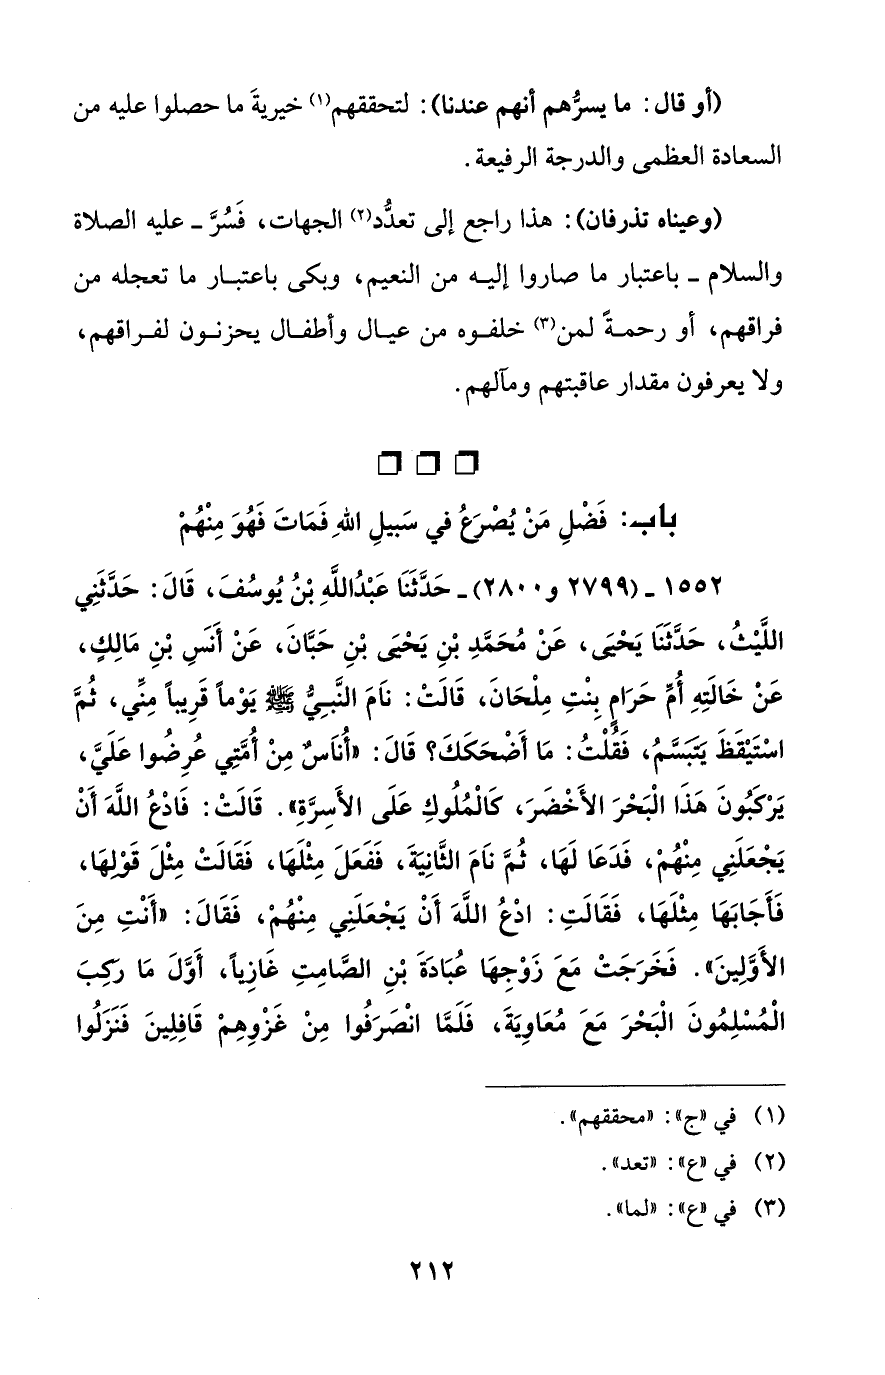 (أو قال: ما يسرُّهم أنهم عندنا): لتحققهم(١) خيريةَ ما حصلوا عليه من
السعادة العظمى والدرجة الرفيعة.
(وعيناه تذرفان): هذا راجع إلى تعدُّد(٢) الجهات، فَسُرَّ ـ عليه الصلاة
والسلام ـ باعتبار ما صاروا إليه من النعيم، وبكى باعتبار ما تعجله من
فراقهم، أو رحمةً لمن(٣) خلفوه من عيال وأطفال يحزنون لفراقهم،
ولا يعرفون مقدار عاقبتهم ومآلهم.
باب: فَضْلِ مَنْ يُصْرَعُ في سَبِيلِ اللهِ فَمَاتَ فَهُوَ مِنْهُمْ
١٥٥٢ ـ (٢٧٩٩ و٢٨٠٠) ـ حَدَّثَنَا عَبْدُاللَّهِ بْنُ يُوسُفَ، قَالَ: حَدَّثَنِي
اللَّيْثُ، حَدَّثَنَا يَحْيَى، عَنْ مُحَمَّدِ بْنِ يَحْيَى بْنِ حَبَّانَ، عَنْ أَنَسِ بْنِ مَالِكٍ،
عَنْ خَالَتِهِ أُمِّ حَرَامٍ بِنْتِ مِلْحَانَ، قَالَتْ: نَامَ النَّبِيُّ ﷺ يَوْماً قَرِيباً مِنِّي، ثُمَّ
اسْتَيْقَظَ يَتَبَسَّمُ، فَقُلْتُ: مَا أَضْحَكَكَ؟ قَالَ: «أُنَاسٌ مِنْ أُمَّتِي عُرِضُوا عَلَيَّ،
يَرْكَبُونَ هَذَا الْبَحْرَ الأَخْضَرَ، كَالْمُلُوكِ عَلَى الأَسِرَّةِ». قَالَتْ: فَادْعُ اللَّهَ أَنْ
يَجْعَلَنِي مِنْهُمْ، فَدَعَا لَهَا، ثُمَّ نَامَ الثَّانِيَةَ، فَفَعَلَ مِثْلَهَا، فَقَالَتْ مِثْلَ قَوْلِهَا،
فَأَجَابَهَا مِثْلَهَا، فَقَالَتِ: ادْعُ اللَّهَ أَنْ يَجْعَلَنِي مِنْهُمْ، فَقَالَ: «أَنْتِ مِنَ
الأَوَّلِينَ». فَخَرَجَتْ مَعَ زَوْجِهَا عُبَادَةَ بْنِ الصَّامِتِ غَازِياً، أَوَّلَ مَا رَكِبَ
الْمُسْلِمُونَ الْبَحْرَ مَعَ مُعَاوِيَةَ، فَلَمَّا انْصَرَفُوا مِنْ غَزْوِهِمْ قَافِلِينَ فَنَزَلُوا
(١) في «ج»: «محققهم».
(٢) في «ع»: «تعد».
(٣) في «ع»: «لما».
٢١٢